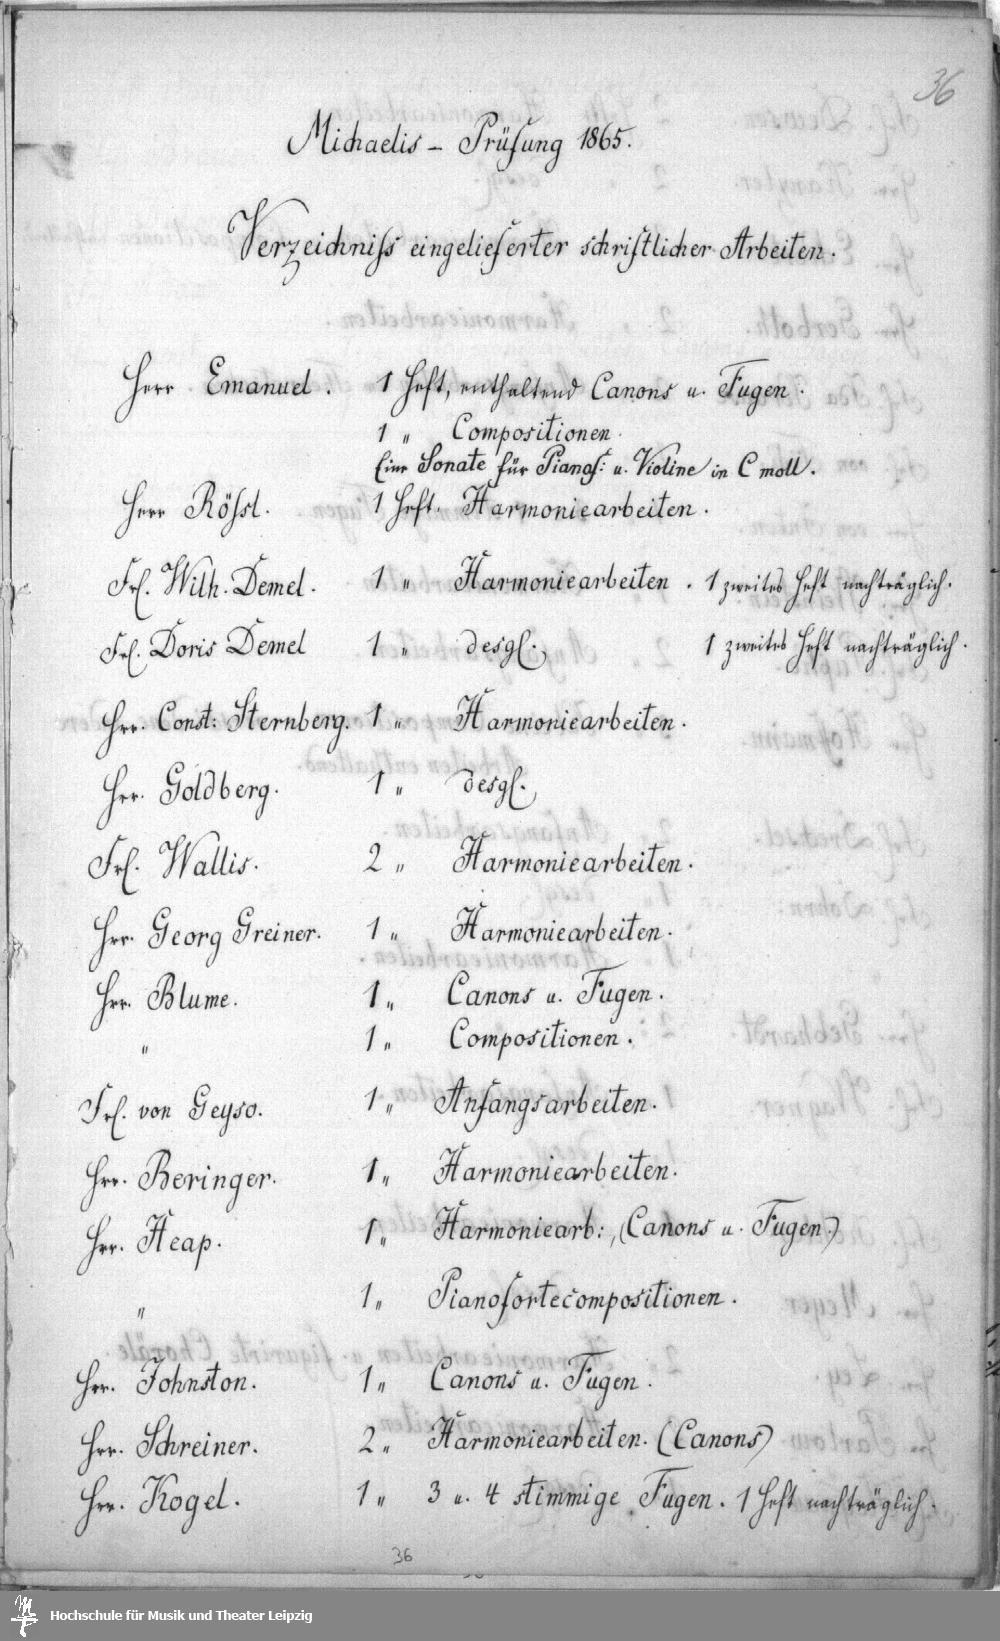 36
Michaelis – Prüfung 1865.
Verzeichniss eingelieferter schriftlicher Arbeiten.
Herr Emanuel. 1 Heft, enthaltend Canons u. Fugen.
1 " Compositionen.
Eine Sonate für Pianof: u. Violine in C moll.
Herr Rössl. 1 Heft. Harmoniearbeiten.
Frl. Wilh. Demel. 1 " Harmoniearbeiten. 1 zweites Heft nachträglich.
Frl. Doris Demel 1 " desgl. 1 zweites Heft nachträglich.
Hrr. Const: Sternberg. 1 " Harmoniearbeiten.
Hrr. Goldberg. 1 " desgl.
Frl. Wallis. 2 " Harmoniearbeiten.
Hrr. Georg Greiner. 1 " Harmoniearbeiten.
Hrr. Blume. 1 " Canons u. Fugen.
" 1 " Compositionen.
Frl. von Geyso. 1 " Anfangsarbeiten.
Hrr. Beringer. 1 " Harmoniearbeiten.
Hrr. Heap. 1 " Harmoniearb:, (Canons u. Fugen.)
" 1 " Pianofortecompositionen.
Hrr. Johnston. 1 " Canons u. Fugen.
Hrr. Schreiner. 2 " Harmoniearbeiten. (Canons)
Hrr. Kogel. 1 " 3 u. 4 stimmige Fugen. 1 Heft nachträglich.
36
Hochschule für Musik und Theater Leipzig